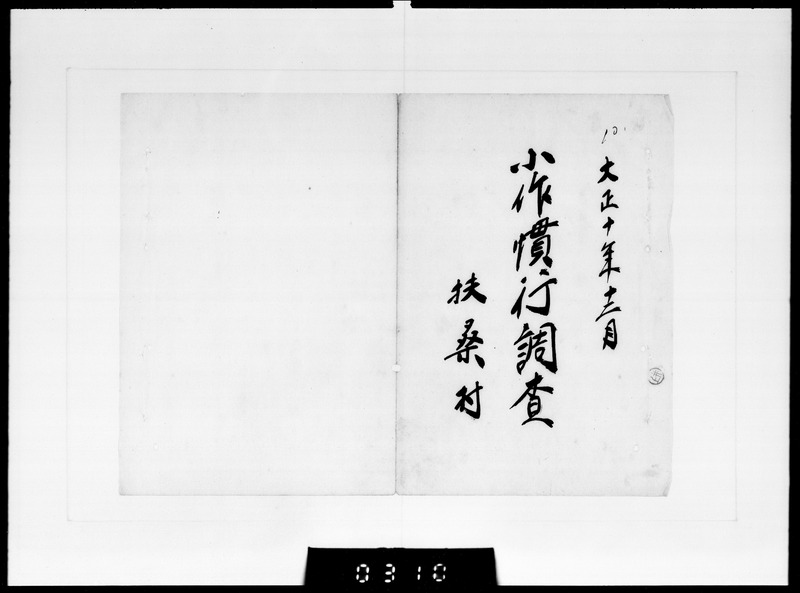 大正十年十二月
小作慣行調査
扶桑村
0310